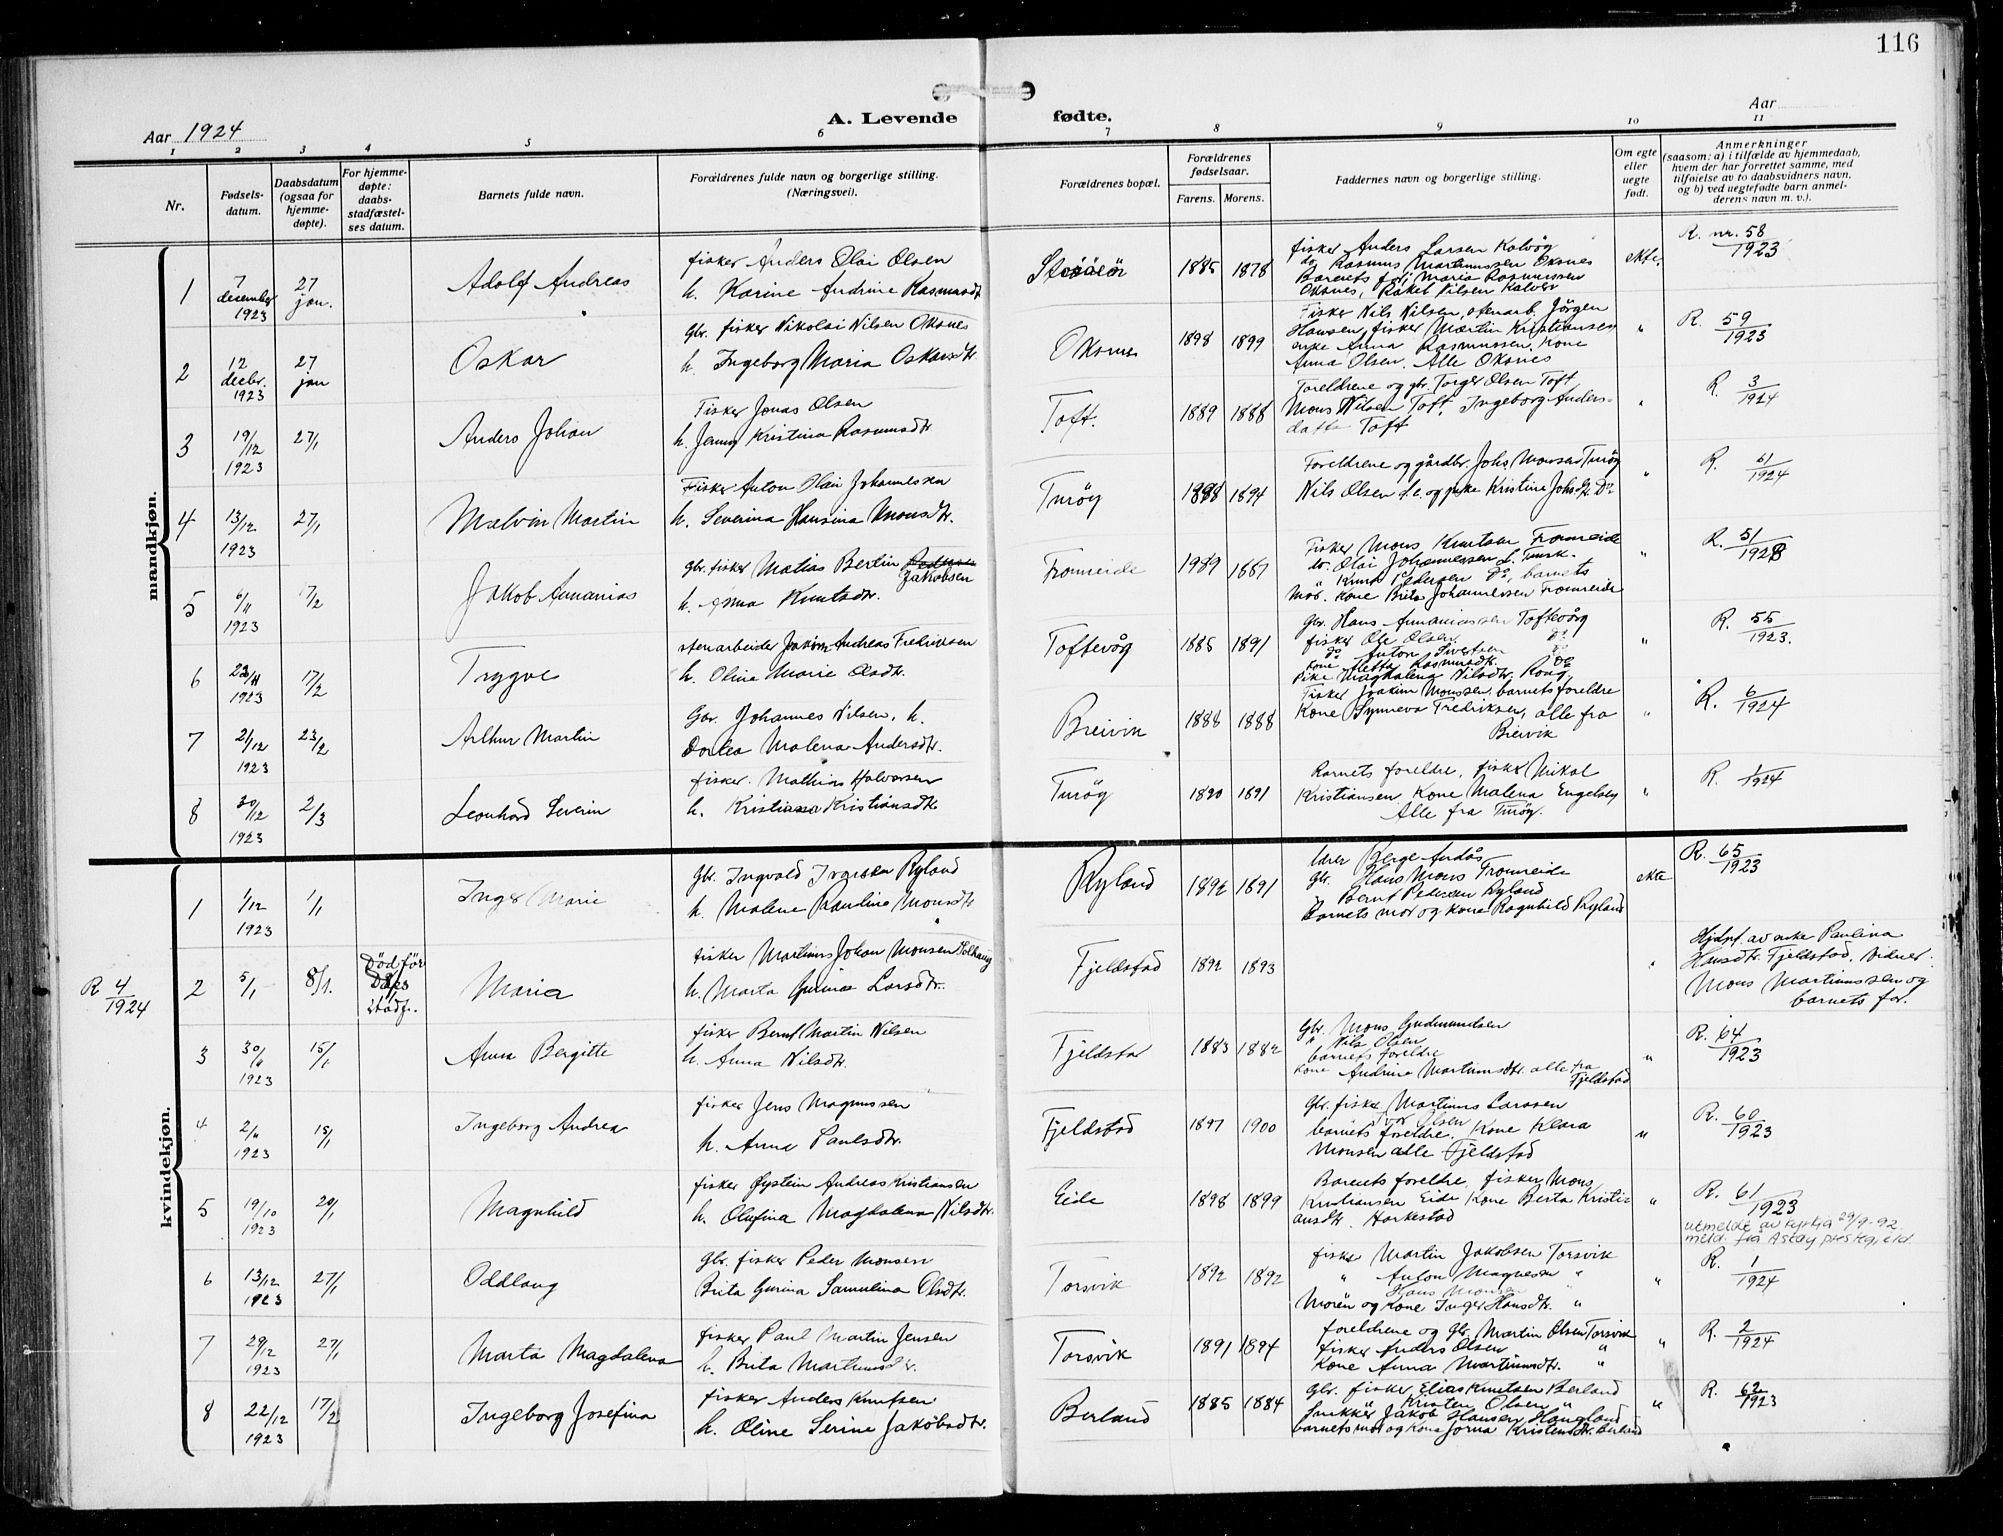 116
Aar 1924
A. Levende fødte.
Aar
1 2 3 4 5 6 7 8 9 10 11
Nr.
Fødsels-
datum.
Daabsdatum
(ogsaa for
hjemme-
døpte).
For hjemme-
døpte:
daabs-
stadfæstel-
ses datum.
Barnets fulde navn.
Forældrenes fulde navn og borgerlige stilling.
(Næringsvei).
Forældrenes bopæl.
Forældrenes
fødselsaar.
Farens. Morens.
Faddernes navn og borgerlige stilling.
Om egte
eller
uegte
født.
Anmerkninger
(saasom: a) i tilfælde av hjemmedaab,
hvem der har forrettet samme, med
tilføielse av to daabsvidners navn,
og b) ved uegtefødte barn anmel-
derens navn m. v.).
mandkjøn.
1
7
december
1923
27
jan.
Adolf Andreas
fisker Anders Olai Olsen
h. Karine Andrine Rasmusdt
1885 1878
fisker Anders Larsen Kalvøg
do Rasmus Martinussen Oksnes
Barnets far, Maria Rasmussen
Oksnes, Rakel Nilsen Kalvøg
ekte.
R. nr. 58
1923
2
12
decbr.
1923
27
jan
Oskar
Gbr. fisker Nikolai Nilsen Oksnes
h. Ingeborg Maria Oskarsdt
Oksnes
1898 1899
Fisker Nils Nilsen, stenarb. Jörgen
Hansen, fisker Martin Kristiansen
enke Anna Rasmussen, kone
Anna Olsen. Alle Oksnes
"
R. 59
1923
3
19/12
1923
27/1
Anders Johan
Fisker Jonas Olsen
h. Jenny Kristina Rasmusdtr
Toft.
1889 1888
Foreldrene og gbr. Torger Olsen Toft
Mons Nilsen Toft, Ingeborg Anders-
datte Toft
"
R. 3
1924
4
13/12
1923
27/1
Malvin Martin
Fisker Anton Olai Johannessen
h. Severina Hansina Monsdtr.
Turøy
1888 1894
Foreldrene og gårdbr. Johs Monsen Turøy
Nils Olsen s.c. og pike Kristine Johsdtr Do
"
R. 61
1924
5
6/11
1923
17/2
Jakob Annanias
gbr. fisker Matias Bertin
Jakobsen
h. Anna Knutsdtr.
Fromreide
1989 1887
Fisker Mons Knutsen Fromreide
do. Olai Johannessen
" Knut Pedersen Do, barnets
mor. Kone Brita Johannessen Fromreide
"
R. 51
1923
6
23/11
1923
17/2
Trygve
stenarbeider Joakim Andreas Fredriksen
h. Oline Marie Olsdtr.
Toftevåg
1885 1891
Gbr. Hans Annaniassen Toftevåg
fisker Ole Olsen Do
do Anton Sivertsen Do
Kone Metta Rasmusdtr. Do
Pike Magdalena Nilsdtr. Rong
"
R. 55
1923.
7
2/12
1923
23/2
Arthur Martin
Gbr. Johannes Nilsen, h.
Dorthea Malena Andersdtr.
Breivik
1888 1888
Fisker Joakim Monssen, barnets foreldre
Kone Synneva Fredriksen, alle fra
Breivik
"
R. 6
1924
8
30/12
1923
2/3
Leonhard Severin
fisker. Mathias Halvorsen
h. Kristiane Kristiansdtr
Turøy
1890 1891
Barnets foreldre, fisker Nikol
Kristiansen Kone Malena Engelsen
Alle fra Turøy.
"
R. 1
1924
kvindekjøn.
1
1/12
1923
1/1
Inger Marie
Gbr. Ingvald Ivarsen Ryland
h. Malene Pauline Monsdtr
Ryland
1892 1891
lærer Berge Andås
Gbr. Hans Mons Fromreide
" Bernt Petersen Ryland
Barnets mor og kone Ragnhild Ryland
ekte
R. 65
1923
R 4
1924
2
5/1
8/1.
Död før
stadf.
Maria
fisker Martinus Johan Monsen Solhaug
h. Marta Gurine Larsdtr.
Fjeldstad
1892 1893
"
Hjdpt. av enke Paulina
Hansdtr. Fjeldstad. Vidner:
Mons Martinussen og
barnets far.
3
30/11
1923
15/1
Anna Bergitte
fisker Bernt Martin Nilsen
h. Anna Nilsdtr.
Fjeldstad
1883 1882
Gbr. Mons Gudmundsen
" Nils Olsen
barnets foreldre
kone Andrine Martinusdtr. alle fra
Fjeldstad
"
R. 64
1923
4
2/11
1923
15/1
Ingeborg Andrea
fisker Jens Magnussen
h. Anna Paulsdtr.
Fjeldstad
1897 1900
Gbr. fisker Martinus Larssen
Olsen
barnets foreldre. Kone Klara
Monsen alle Fjeldstad
"
R. 60
1923
5
19/10
1923
20/1
Magnhild
fisker Øystein Andreas Kristiansen
h. Olufina Magdalena Nilsdtr.
Eide
1898 1899
Barnets foreldre, fisker Mons
Kristiansen Eide Kone Berta Kristi-
ansdtr. Horkestad
"
R. 61
1923
utmeldt av kyrkja 29/9-92.
meld. frå Askøy prestegjeld.
6
13/12
1923
27/1
Oddlaug
Gbr. fisker Peder Monsen
Brita Gurina Samuline Olsdtr.
Torsvik
1892 1892
fisker Martin Jakobsen Torsvik
" Anton Magnesen "
Hans Monsen "
Moren og Kone Inger Hansdtr. "
"
R. 1
1924
7
29/12
1923
27/1
Marta Magdalena
fisker Paul Martin Jensen
h. Brita Martinusdtr.
Torsvik
1891 1894
foreldrene og Gbr. Martin Olsen Torsvik
fisker Anders Olsen "
Kone Anna Martinusdtr. "
"
R. 2
1924
8
22/12
1923
17/2
Ingeborg Josefina
fisker Anders Knutsen
h. Oline Serine Jakobsdtr.
Berland
1885 1884
Gbr. fisker Elias Knutsen Berland
" Kristen Olsen "
Snekker Jakob Hansen Haugland
barnets mor og kone Jorina Kristensdtr. Berland
"
R. 62
1923